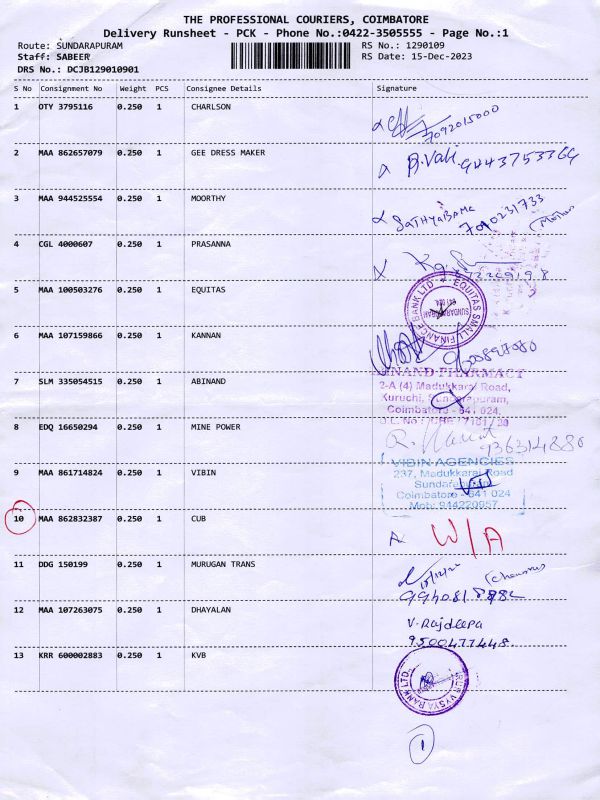 THE PROFESSIONAL COURIERS, COIMBATORE
Delivery Runsheet - PCK - Phone No.:0422-3505555 - Page No.:1
Route: SUNDARAPURAM
Staff: SABEER
DRS No.: DCJB129010901
RS No.: 1290109
RS Date: 15-Dec-2023
S No Consignment No Weight PCS Consignee Details Signature
1 OTY 3795116 0.250 1 CHARLSON
7092015000
2 MAA 862657079 0.250 1 GEE DRESS MAKER
9443753369
3 MAA 944525554 0.250 1 MOORTHY
SATHYABAMA 7090231733
(Mother)
4 CGL 4000607 0.250 1 PRASANNA
5 MAA 100503276 0.250 1 EQUITAS
EQUITAS SMALL FINANCE BANK LTD
641 024
SUNDARAPURAM
6 MAA 107159866 0.250 1 KANNAN
7 SLM 335054515 0.250 1 ABINAND
PHARMACY
2-A (4) Madukkarai Road,
Kuruchi, Sundarapuram,
Coimbatore - 641 024.
8 EDQ 16650294 0.250 1 MINE POWER
9 MAA 861714824 0.250 1 VIBIN
VIBIN AGENCIES
237, Madukkarai Road
Sundarapuram
Coimbatore - 641 024
Mob: 944220957
10 MAA 862832387 0.250 1 CUB
N/A
11 DDG 150199 0.250 1 MURUGAN TRANS
12 MAA 107263075 0.250 1 DHAYALAN
V. Rajdeepa
9500477448
13 KRR 600002883 0.250 1 KVB
VYSYA BANK LTD.
1